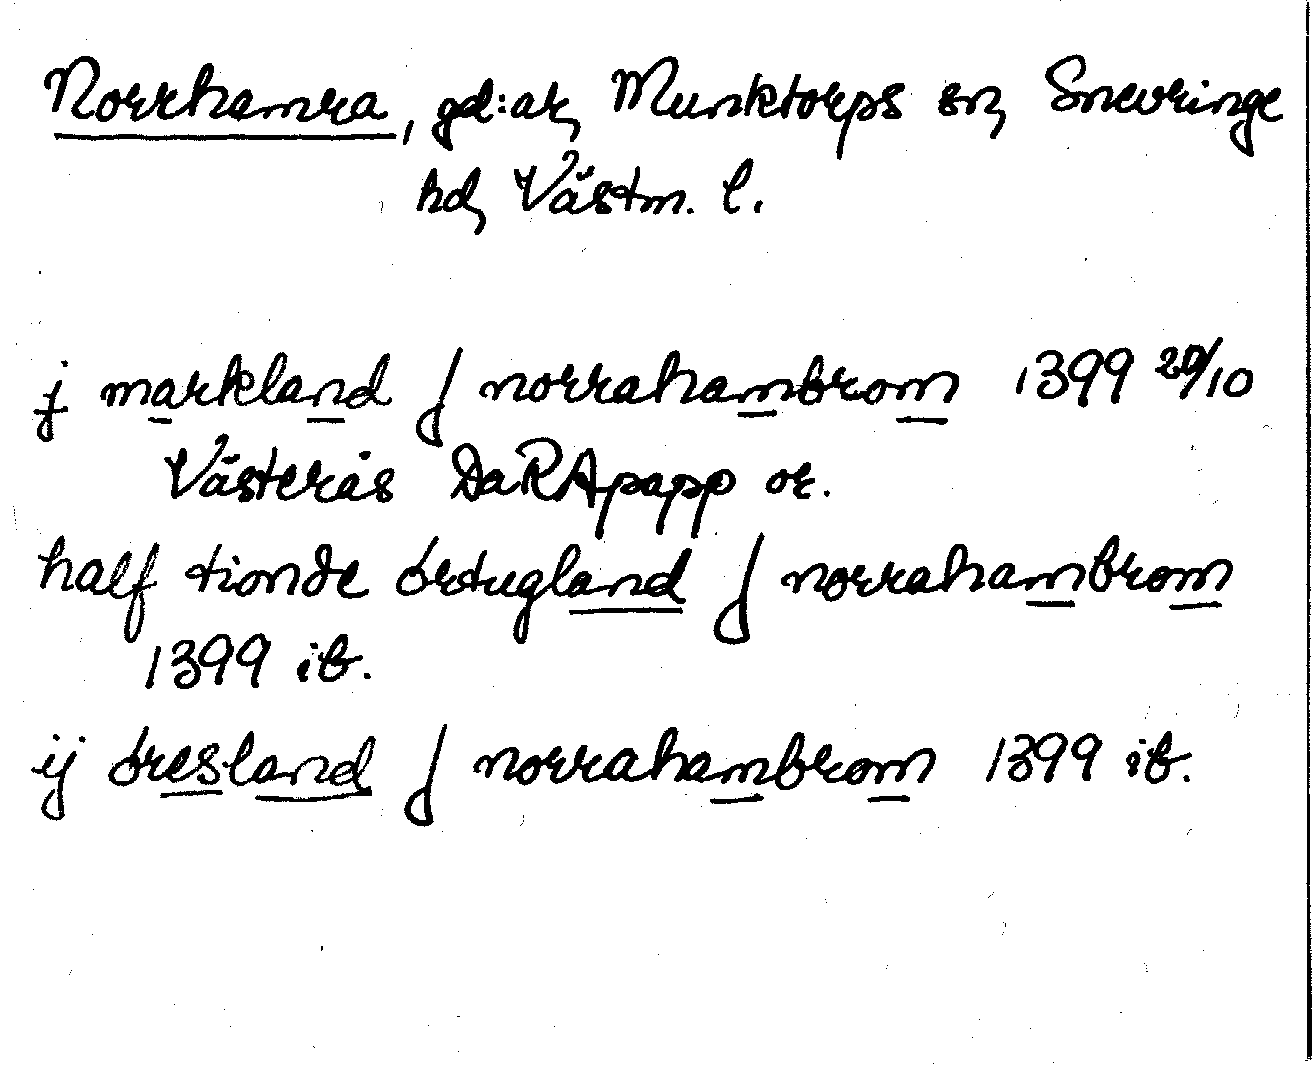 Norrhamra, gd:ar, Munktorps sn, Snevringe
hd, Västm. l.
j markland J norrahambrom 1399 20/10
Västerås DaRApapp or.
half tionde örtugland J norrahambrom
1399 ib.
ij öresland J norrahambrom 1399 ib.